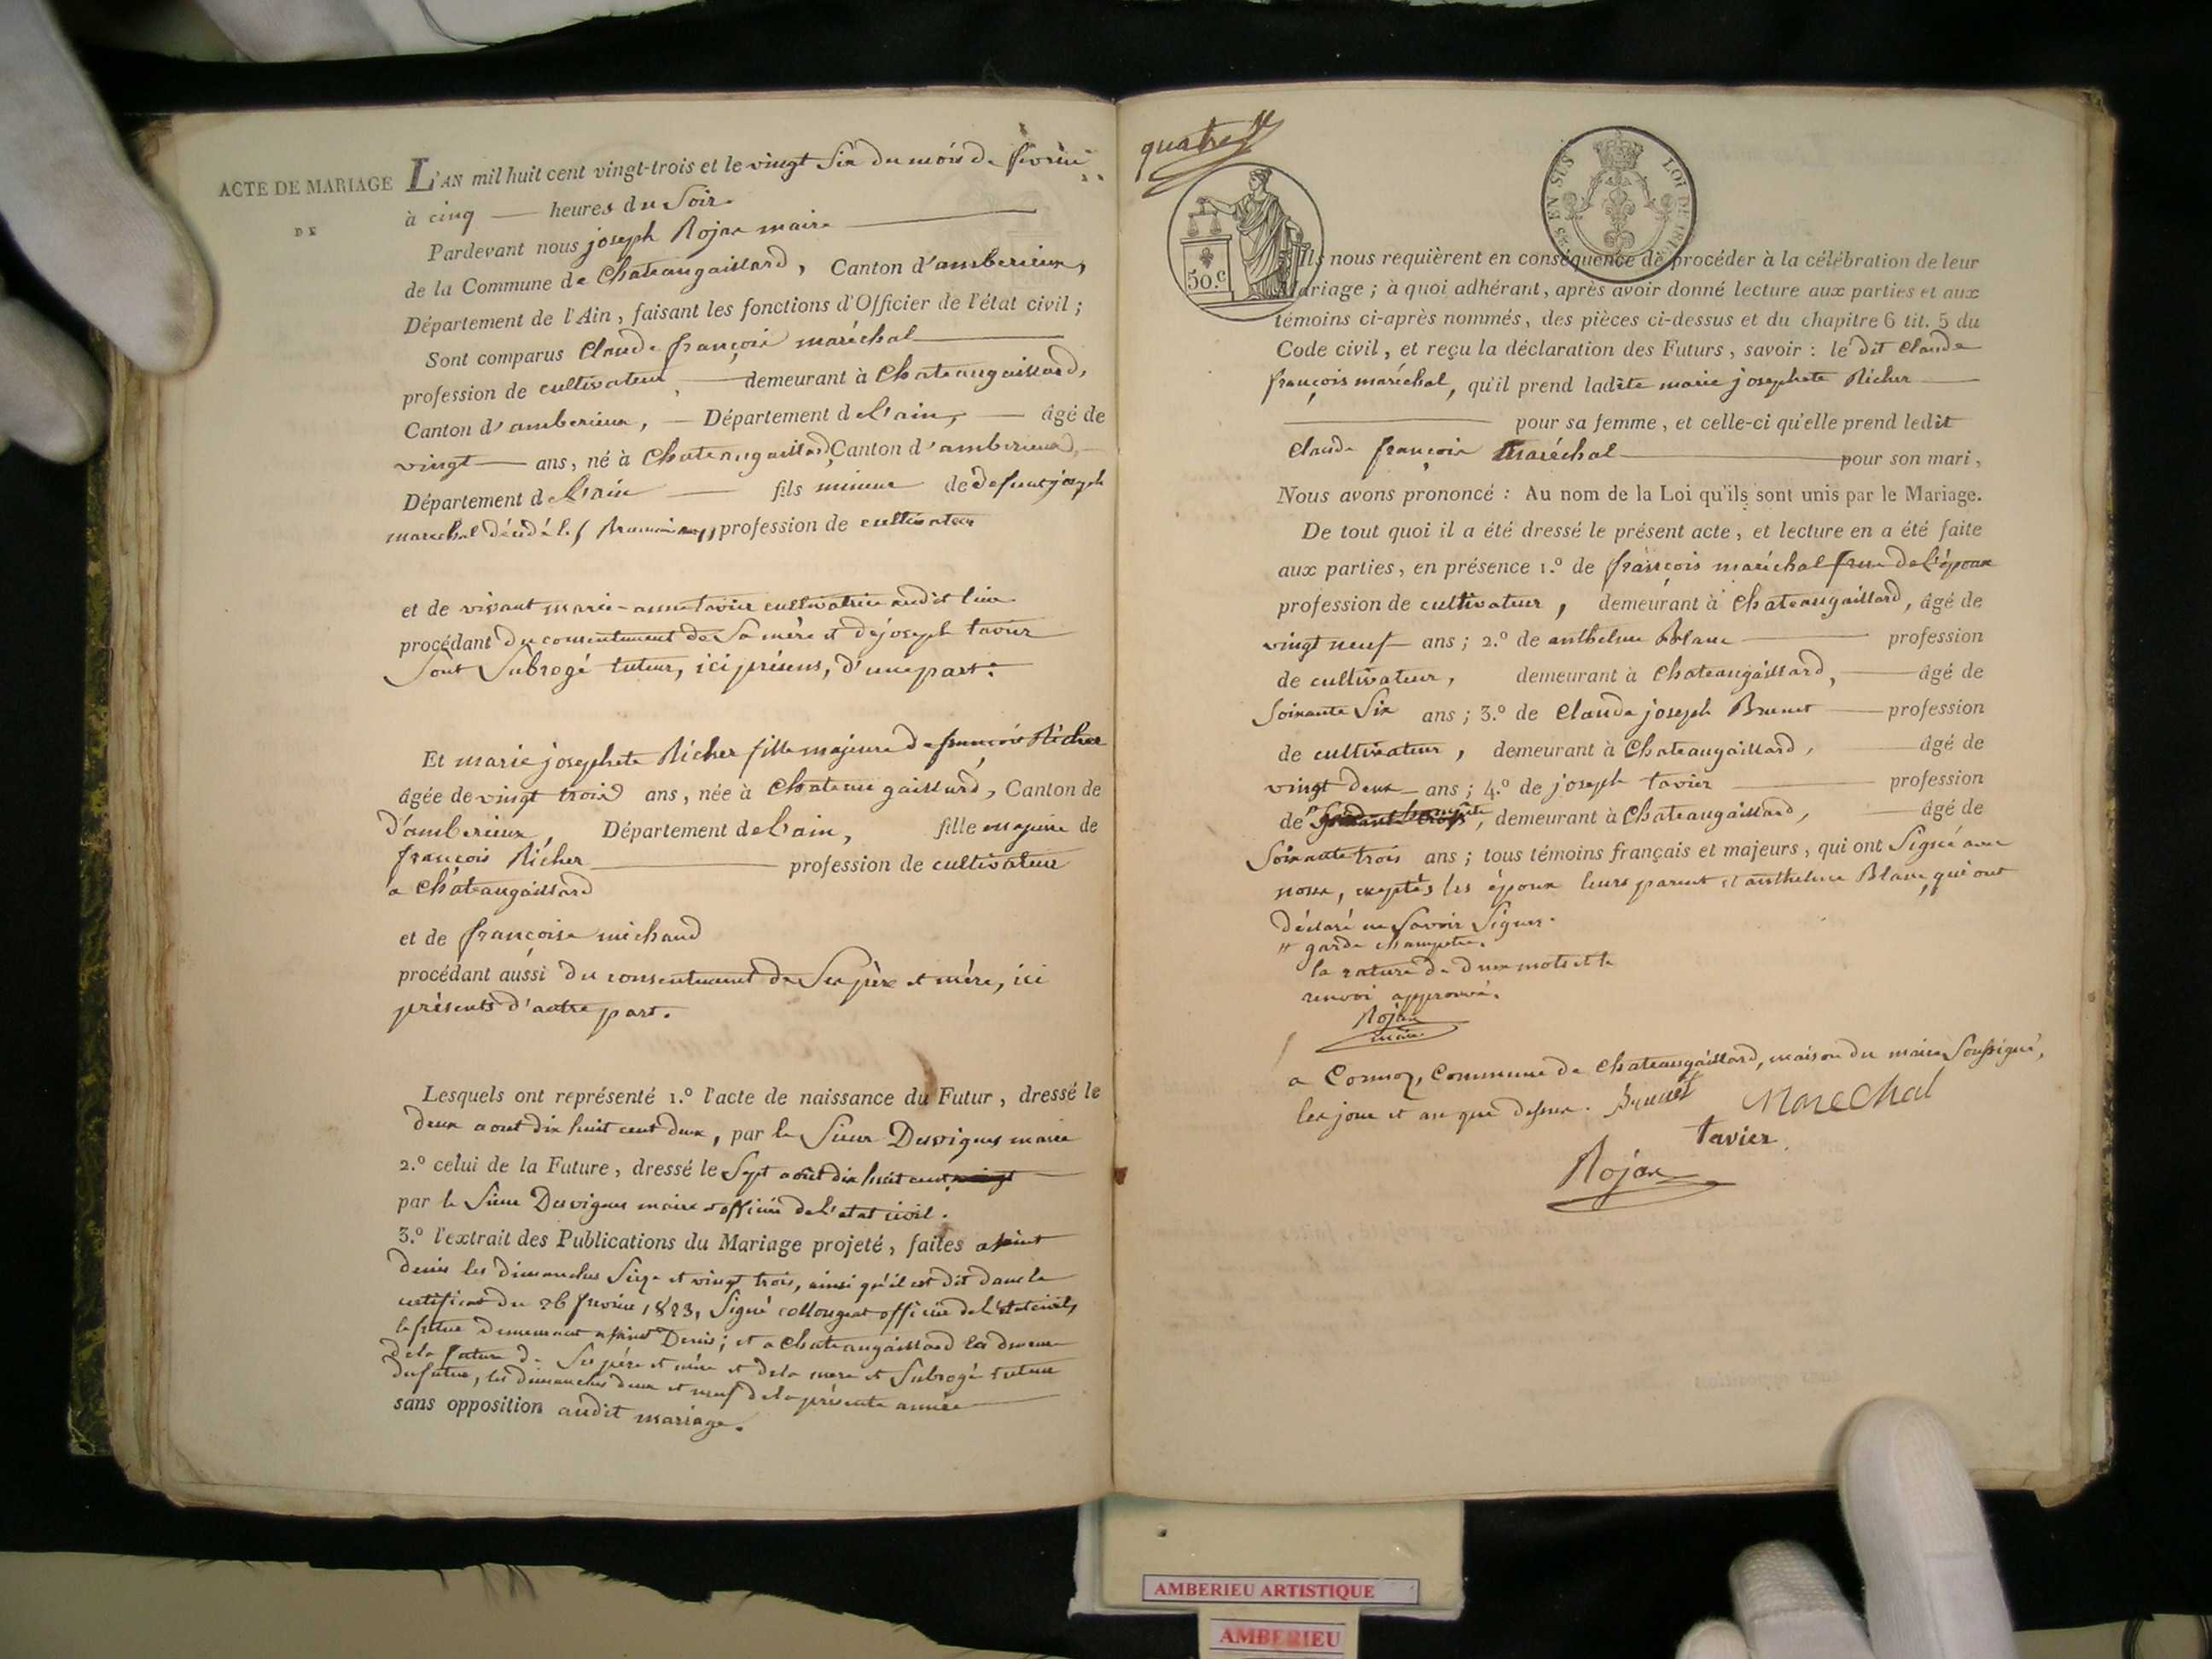 ACTE DE MARIAGE
DE
L'AN mil huit cent vingt-trois et le vingt six du mois de fevrier
à cinq heures du soir
Pardevant nous joseph Rojat maire
de la Commune de Chateaugaillard, Canton d'amberieux,
Département de l'Ain, faisant les fonctions d'Officier de l'état civil;
Sont comparus Claude françois maréchal
profession de cultivateur, demeurant à Chateaugaillard,
Canton d'amberieux, Département de l'ain, âgé de
vingt ans, né à Chateaugaillard Canton d'amberieux,
Département de l'ain fils mineur de defunt joseph
marechal décédé le profession de cultivateur
et de vivant marie-anne tavier cultivatrice audit lieu
procédant du consentement de sa mère et de joseph tavier
son subrogé tuteur, ici présens, d'une part.
Et marie josephete Richer fille majeure de françois Richer
âgée de vingt trois ans, née à Chateau gaillard, Canton de
d'amberieux, Département de l'ain, fille majeure de
françois Richer profession de cultivateur
a Chateaugaillard
et de françoise michaud
procédant aussi du consentement de ses père et mère, ici
présents d'autre part.
Lesquels ont représenté 1.º l'acte de naissance du Futur, dressé le
deux aout dix huit cent deux, par le sieur Duvigues maire
2.º celui de la Future, dressé le sept août dix huit cent
par le sieur Duvigues maire officier de l'etat civil.
3.º l'extrait des Publications du Mariage projeté, faites a saint
denis les dimanches seize et vingt trois, ainsi qu'il est dit dans le
certificat du 26 fevrier 1823, signé collongeat officier de l'etat civil,
la future demeurant a saint Denis; et a Chateaugaillard la demeure
de la future de ses père et mère et de la mere et subrogé tuteur
du futur, les dimanches deux et neuf de la présente année
sans opposition audit mariage.
quatre
50.C
EN SUS
LOI DE 181
Ils nous requièrent en conséquence de procéder à la célébration de leur
Mariage; à quoi adhérant, après avoir donné lecture aux parties et aux
témoins ci-après nommés, des pièces ci-dessus et du chapitre 6 tit. 5 du
Code civil, et reçu la déclaration des Futurs, savoir: le dit Claude
françois maréchal, qu'il prend ladite marie josephete Richer
pour sa femme, et celle-ci qu'elle prend ledit
Claude françois maréchal pour son mari,
Nous avons prononcé: Au nom de la Loi qu'ils sont unis par le Mariage.
De tout quoi il a été dressé le présent acte, et lecture en a été faite
aux parties, en présence 1.º de françois maréchal frere de l'époux
profession de cultivateur, demeurant à Chateaugaillard, âgé de
vingt neuf ans; 2.º de anthelme Blanc profession
de cultivateur, demeurant à Chateaugaillard, âgé de
soixante six ans; 3.º de Claude joseph Brunet profession
de cultivateur, demeurant à Chateaugaillard, âgé de
vingt deux ans; 4.º de joseph tavier profession
de demeurant à Chateaugaillard, âgé de
soixante trois ans; tous témoins français et majeurs, qui ont signé avec
nous, exeptés les époux leurs parent et anthelme Blanc, qui ont
déclaré ne savoir signer.
garde champetre.
la rature de deux mots et le
renvoi approuvé.
Rojat
maire
a Cormoz, Commune de Chateaugaillard, maison du maire soussigné,
les jour et an que dessus. Brunet Marechal
tavier
Rojat
AMBERIEU ARTISTIQUE
AMBERIEU